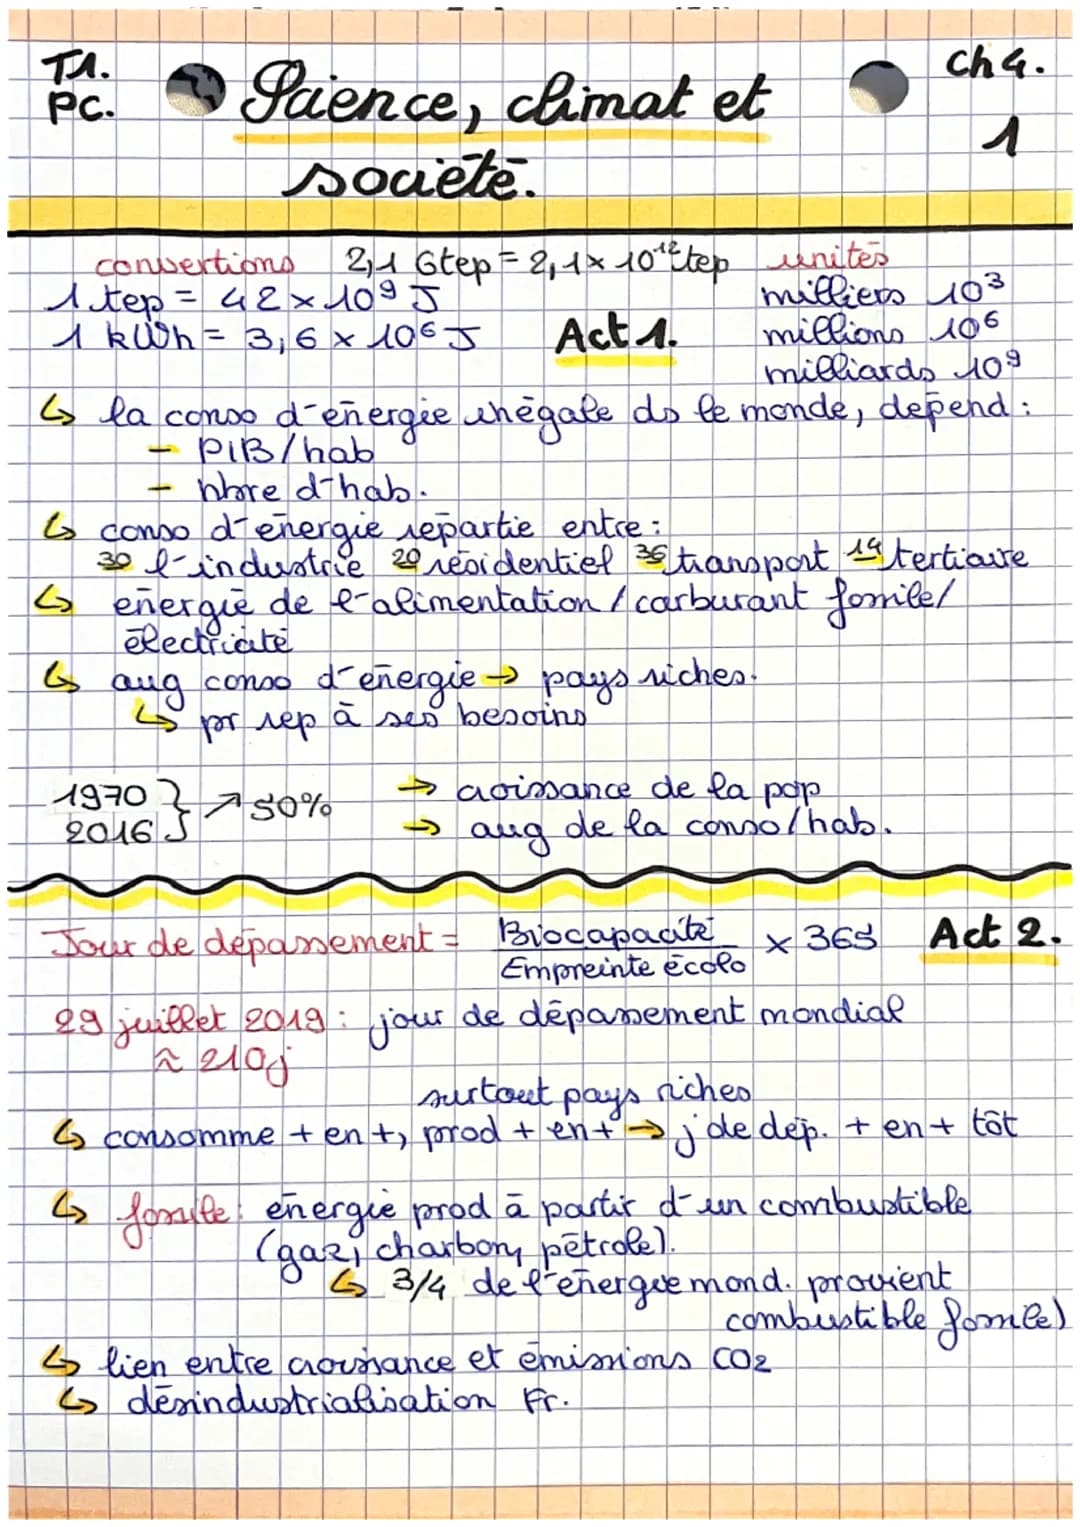 T1.
PC.
Science, climat et
société.
Ch 4.
1
conversions 2,1 Gtep = 2,1 x 10¹² tep unités
1 tep = 42 x 10⁹ J milliers 10³
1 kWh = 3,6 x 10⁶ J Act 1. millions 10⁶
milliards 10⁹
↳ la conso d'énergie inégale ds le monde, dépend :
- PIB/hab
- nbre d'hab.
↳ conso d'énergie répartie entre :
30 l'industrie 20 résidentiel 36 transport 14 tertiaire
↳ énergie de l'alimentation / carburant fossile/
électricité
↳ aug conso d'énergie → pays riches.
↳ pr rep à ses besoins
1970
2016 } ↗ 50%
→ croissance de la pop
→ aug de la conso/hab.
Jour de dépassement = Biocapacité / Empreinte écolo x 365 Act 2.
29 juillet 2019 : jour de dépassement mondial
≈ 210j
surtout pays riches
↳ consomme + en +, prod + en + → j de dép. + en + tôt
↳ fossile : énergie prod à partir d'un combustible
(gaz, charbon, pétrole).
↳ 3/4 de l'énergie mond. provient
combustible fossile)
↳ lien entre croissance et émissions CO2
↳ désindustrialisation Fr.